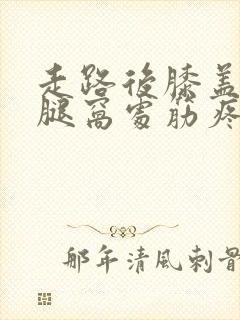 走路後膝蓋
腿窩處筋疼
那年清風刺骨